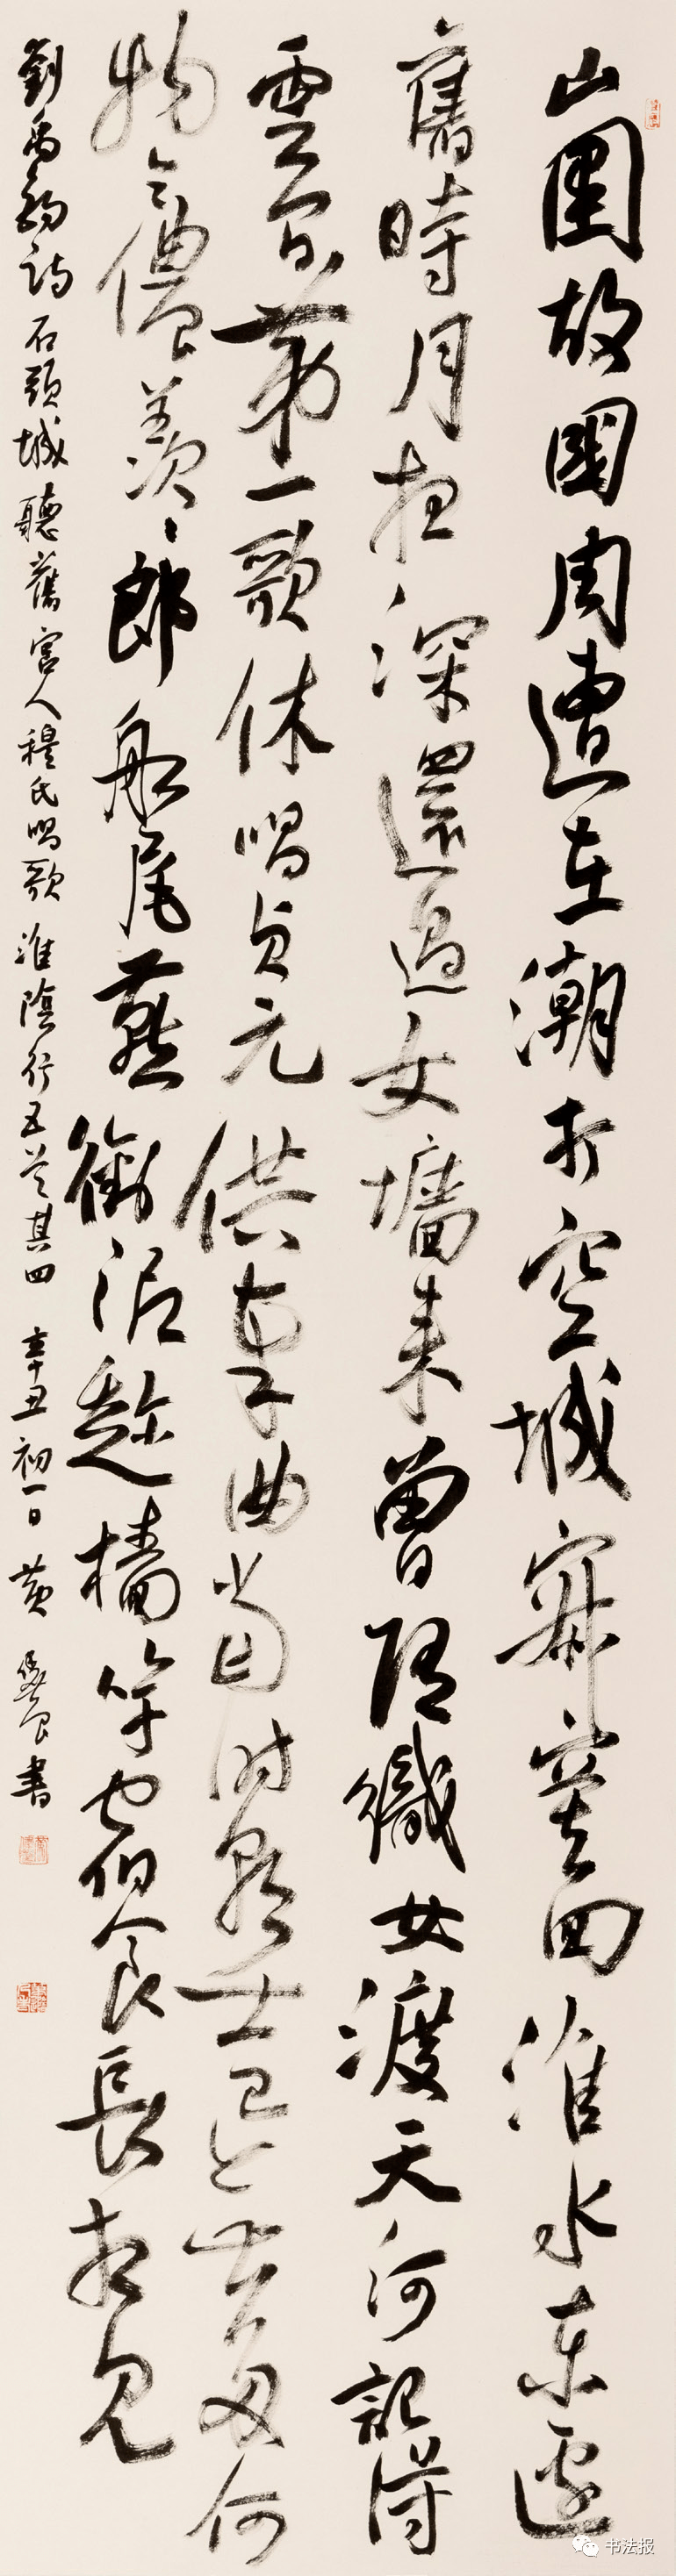 山圍故國周遭在潮打空城寂寞回淮水東邊
舊時月夜深還過女墻來曾隨織女渡天河記得
雲間第一歌休唱貞元供奉曲當時朝士已無多何
物令儂羨羨郎船尾燕銜泥趁檣竿宿食長相見
劉禹錫詩石頭城聽舊宮人穆氏唱歌淮陰行五首其四 辛丑初一日 黃書
书法报